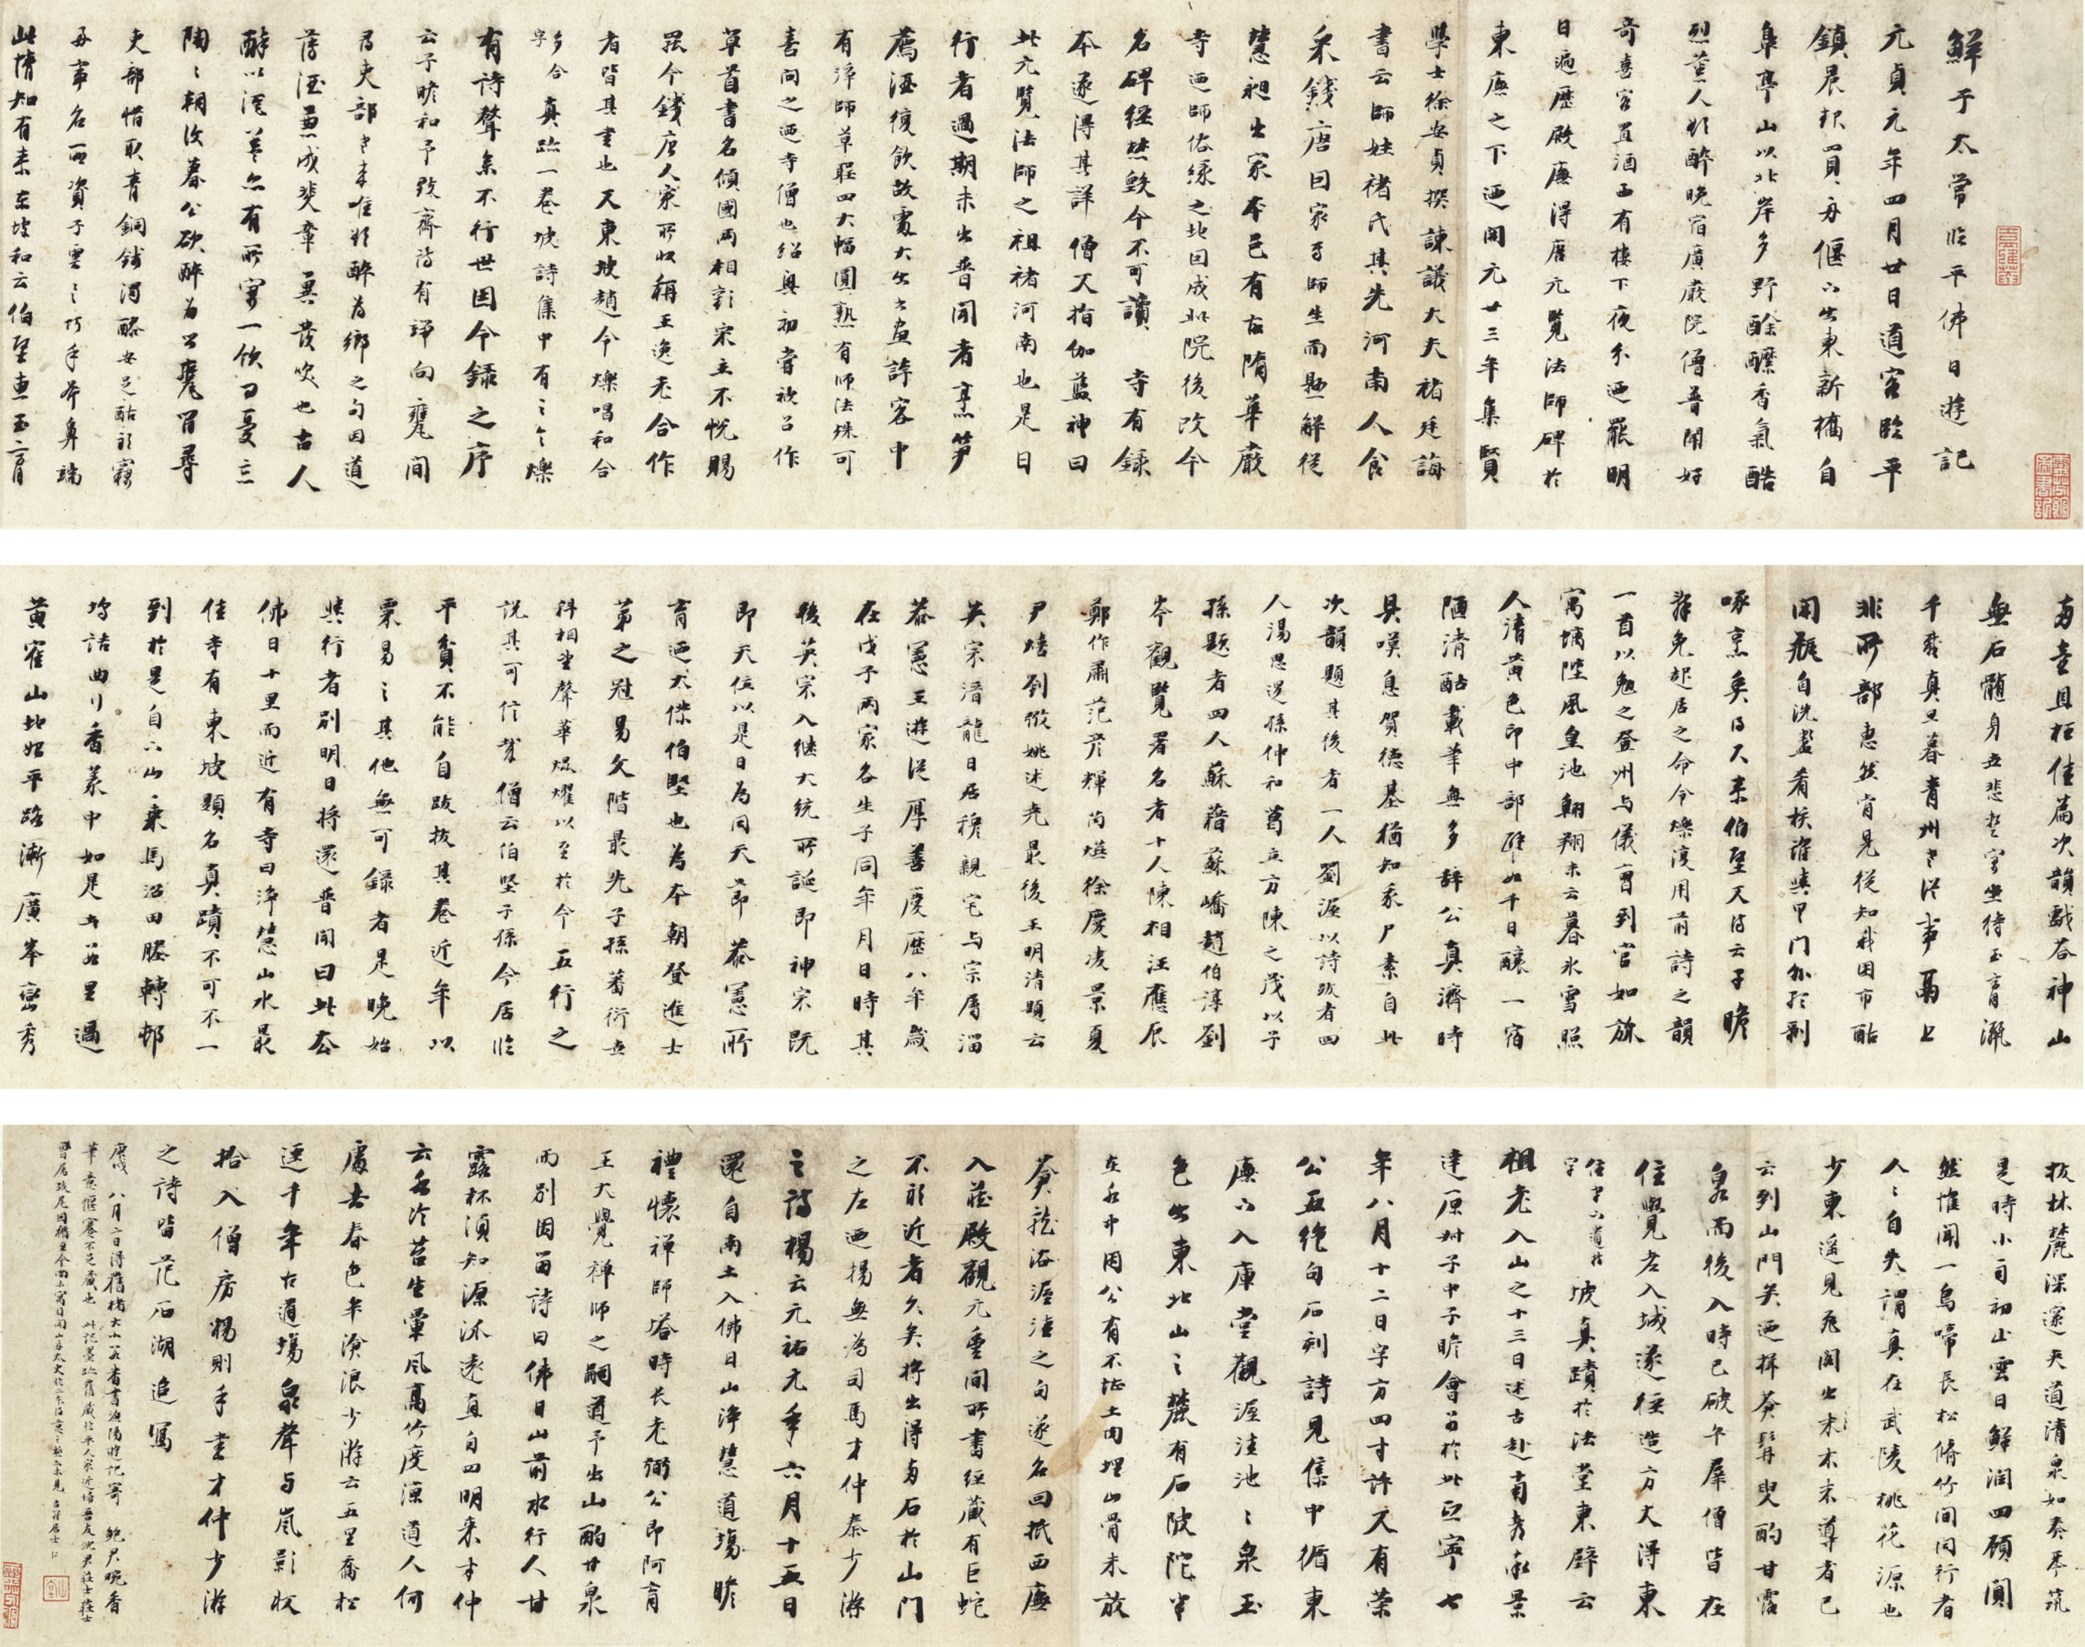 鮮于太常臨平佛日遊記
元貞元年四月廿日道客臨平
鎮晨報買舟偃六出東新橋自
皐亭山以北岸多野酴醾香氣酷
烈薰人欲醉晚宿廣嚴院僧普聞好
奇喜客置酒西有樓下夜分迺罷明
日遍歷殿廡得唐元覽法師碑於
東廡之下迺開元廿三年集賢
學士徐安貞撰諫議大夫褚廷誨
書云師姓褚氏其先河南人食
采錢唐因家焉師生而懸解從
慧昶出家本邑有古隋華嚴
寺迺師佑緣之地因成此院後改今
名碑經焚毀今不可讀 寺有錄
本遂得其詳 僧又指伽藍神曰
此元覽法師之祖褚河南也是日
行者過期未出普聞者烹笋
薦酒復飲故處大出書畫許客中
有淨師草聖四大幅圓熟有師法殊可
喜問之迺寺僧也紹興初嘗被召作
草首書名傾國兩相影宋主不悅賜
罷今錢唐人家所收稱王逸老合作
者皆其書也又東坡趙令爍唱和合
字多合 真跡一卷坡詩集中有之令爍
有詩聲集不行世因今錄之序
云子瞻和予致齋詩有諍向甕間
尋吏部老來唯欲醉為鄉之句因道
薄酒兼成斐章異發笑也古人
醉以酒蓋亦有所寄一飲得憂忘
陶陶朝復暮公欲醉為名甕間尋
吏部惜取青銅錢濁醪安足酤祇窮
身事名西資子雲之巧手斧鼻端
此情知有素東坡和云伯堅惠玉膏
多壺且枉佳篇次韻戲答神山
無石髓身五悲塵寄坐待玉膏流
千載真旦暮青州老從事鬲上
非所部惠然肯見從知我困市酤
開瓶自洗盞肴核誰與具門外聽剝
啄烹魚得尺素伯堅又詩云子瞻
辭免起居之命令爍復用前詩之韻
一首以勉之登州與儀曹到官如旅
寓墀陛鳳皇池翱翔未云暮氷雪照
人清黃色印中部醉如千日釀一宿
陋清酤載筆無多辭公真濟時
具嘆息賀德基猶知乘尸素自此
次韻題其後者一人劉渥以詩跋者四
人湯思退孫仲和葛立方陳之茂以子
孫題者四人蘇藉蘇嶠趙伯淳劉
岑觀覽署名者十人陳相汪應辰
鄭作肅范彥輝芮燁徐慶凌景夏
尹焞劉儆姚述堯最後王明清題云
英宗潛龍日居穆親宅与宗屬淄
恭憲王遊從厚善慶歷八年歲
在戊子兩家各生子同年月日時其
後英宗入継大統所誕即神宗既
即天位以是日為同天節恭憲所
育迺太傑伯堅也為本朝登進士
第之冠易文階最先子孫蕃衍五
科相望聲華焜燿以至於今五行之
說其可信哉僧云伯堅子孫今居臨
平貧不能自跋拔其卷近年以
粟易之其他無可錄者是晚始
與行者別明日將還普聞曰此去
佛日十里而近有寺曰淨慧山水最
佳寺有東坡題名真蹟不可不一
到於是自六山乘馬沿田塍轉邨
塢詰曲行香茶中如是者若里過
黃雀山北始平路漸廣峯巒秀
拔林麓深邃夾道清泉如奏琴筑
是時小雨初止雲日鮮潤四顧闃
然惟聞一鳥啼長松脩竹間同行者
人人自失謂真在武陵桃花源也
少東遙見飛閣出木末導者已
云到山門矣迺揖蒼髯叟酌甘露
泉而後入時已破午羣僧皆在
住覺老入城遂徑造方丈得東
坡真蹟於法堂東壁云
祖老入山之十三日述古赴南都景
達原州子中子瞻會別於此熙寧七
年八月十二日字方四寸許又有榮
公五絕句石刻詩見集中循東
廡六入庫堂觀渥洼池池泉玉
色出東北山之麓有石陂陀半
在水中用公有不堪土肉埋山骨未放
蒼龍浴渥洼之句遂名回抵西廡
入莊殿觀元豊間所書經藏有巨蛇
不祇近者久矣將出得多石於山門
之左迺楊無為司馬才仲秦少游
之詩楊云元祐元年六月十五日
還自南土入佛日山淨慧道場瞻
禮懷禪師塔時長老弼公即阿育
王大覺禪師之嗣道予出山酌甘泉
而別因留詩曰佛日山前水行人甘
露杯須知源沠遠直自四明來才仲
云水冷苔生暈風高竹度涼道人何
處去春色半滄浪少游云五里喬松
逕千年古道場泉聲与嵐影收
拾入僧房楊則手書才仲少游
之詩皆范石湖追寫